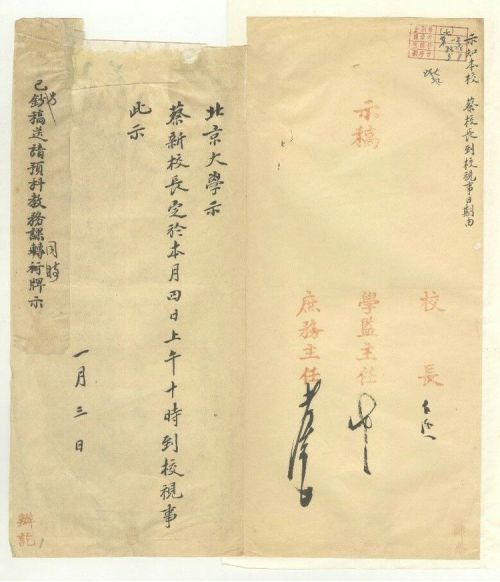 示知本校 蔡校長到校視事日期由
示稿
校長
學監主任
庶務主任
北京大學示
蔡新校長定於本月四日上午十時到校視事
此示
一月三日
已鈔稿送請預科教務課轉衍牌示
同時
辦訖